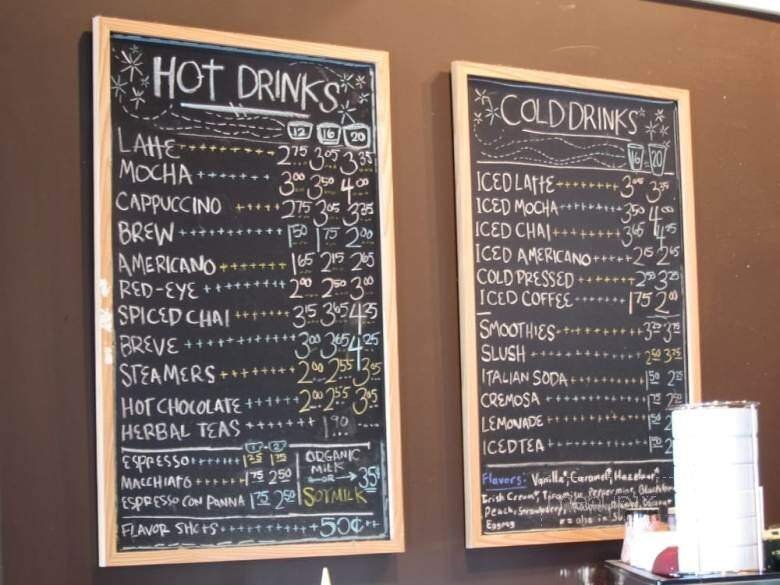 HOT DRINKS
12 16 20
LATTE 2.75 3.05 3.35
MOCHA 3.00 3.50 4.00
CAPPUCCINO 2.75 3.05 3.35
BREW 1.50 1.75 2.00
AMERICANO 1.65 2.15 2.65
RED-EYE 2.00 2.50 3.00
SPICED CHAI 3.15 3.65 4.25
BREVE 3.00 3.65 4.25
STEAMERS 2.00 2.55 3.05
HOT CHOCOLATE 2.00 2.55 3.05
HERBAL TEAS 1.90
1 2
ESPRESSO 1.25 1.75
MACCHIATO 1.75 2.50
ESPRESSO CON PANNA 1.75 2.50
ORGANIC
MILK
OR → 35¢
SOYMILK
FLAVOR SHOTS 50¢
COLD DRINKS
16 20
ICED LATTE 3.05 3.35
ICED MOCHA 3.50 4.00
ICED CHAI 3.65 4.25
ICED AMERICANO 2.15 2.65
COLD PRESSED 2.50 3.25
ICED COFFEE 1.75 2.00
SMOOTHIES 3.25 3.75
SLUSH 2.50 3.25
ITALIAN SODA 1.50
CREMOSA 1.75
LEMONADE 1.50
ICED TEA 1.50
Flavors: Vanilla*, Caramel*, Hazelnut*
Irish Cream*, Tiramisu, Peppermint,
Peach, Strawberry
Eggnog *= also in